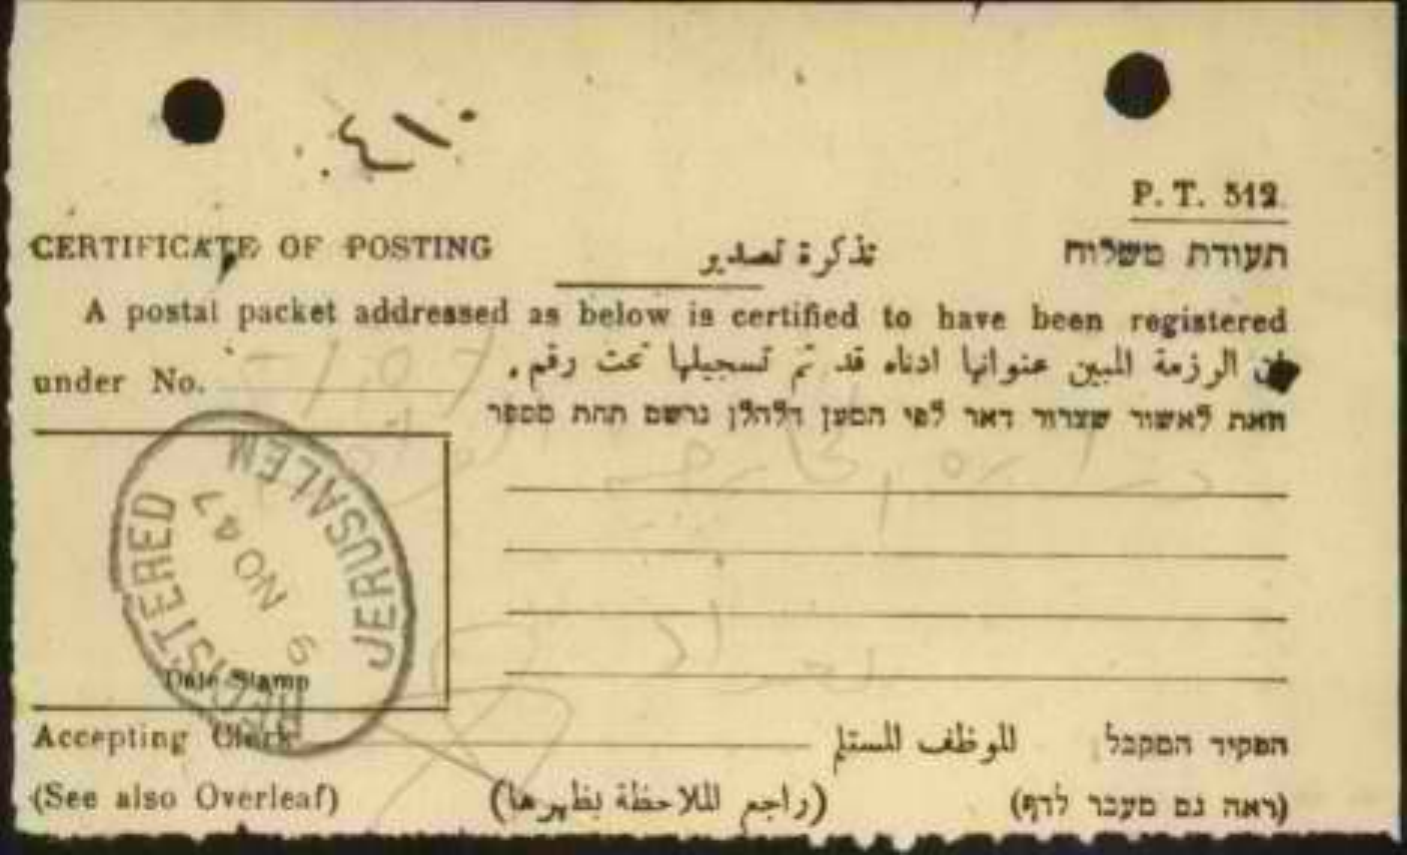 ٤١٠
P. T. 512.
CERTIFICATE OF POSTING تذكرة تصدير תעודת משלוח
A postal packet addressed as below is certified to have been registered
under No. ان الرزمة المبين عنوانها ادناه قد تم تسجيلها تحت رقم.
וזאת לאשור שצרור דאר לפי המען דלהלן נרשם תחת מספר
REGISTERED JERUSALEM
9 NO 47
Date Stamp
Accepting Clerk الموظف المستلم הפקיד המקבל
(See also Overleaf) (راجع الملاحظة بظهرها) (ראה גם מעבר לדף)